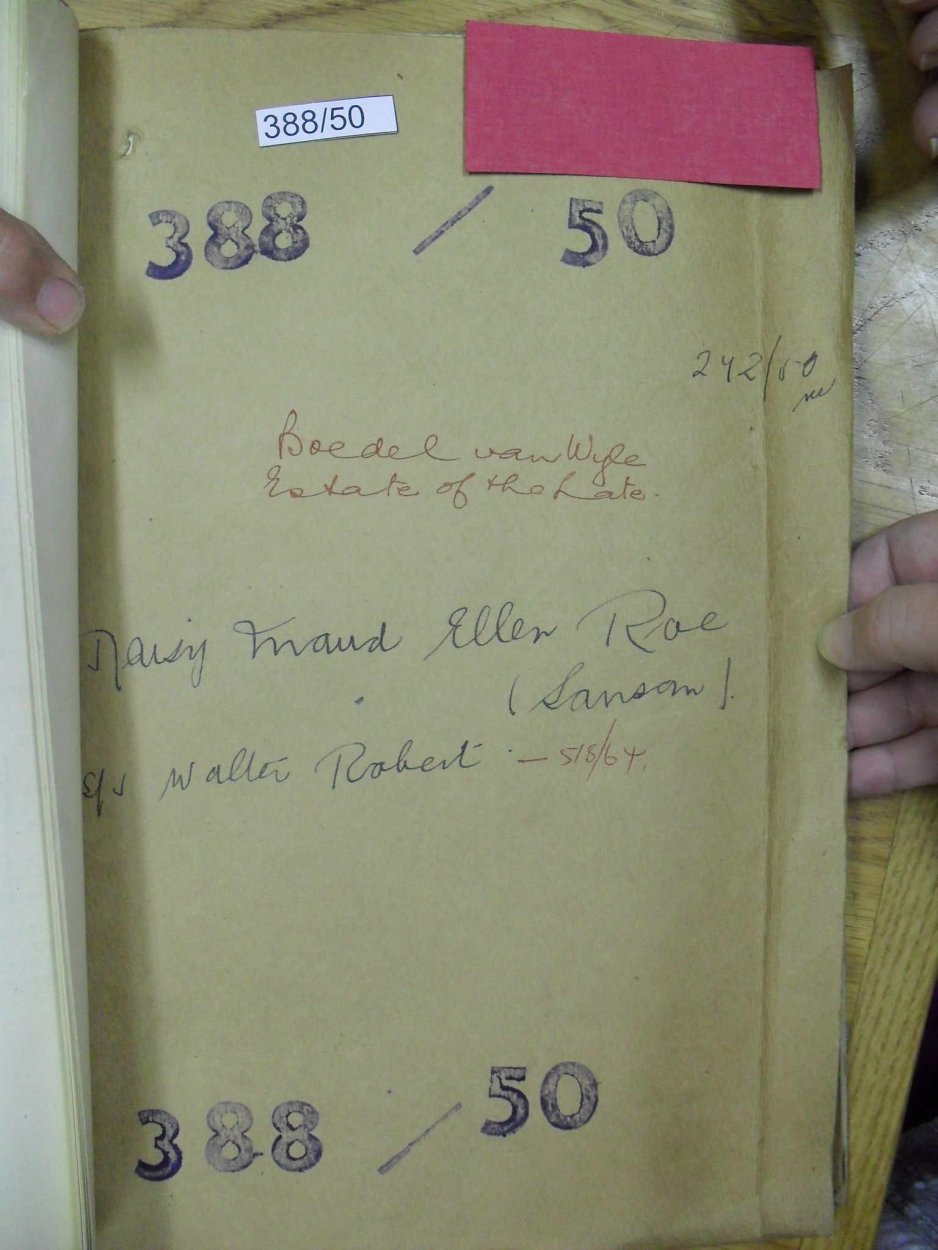 388/50
388 / 50
242/50
Boedel van Wyle
Estate of the Late.
Daisy Maud Ellen Roe
(Sansom).
s/s Walter Robert — 518/64.
388 / 50